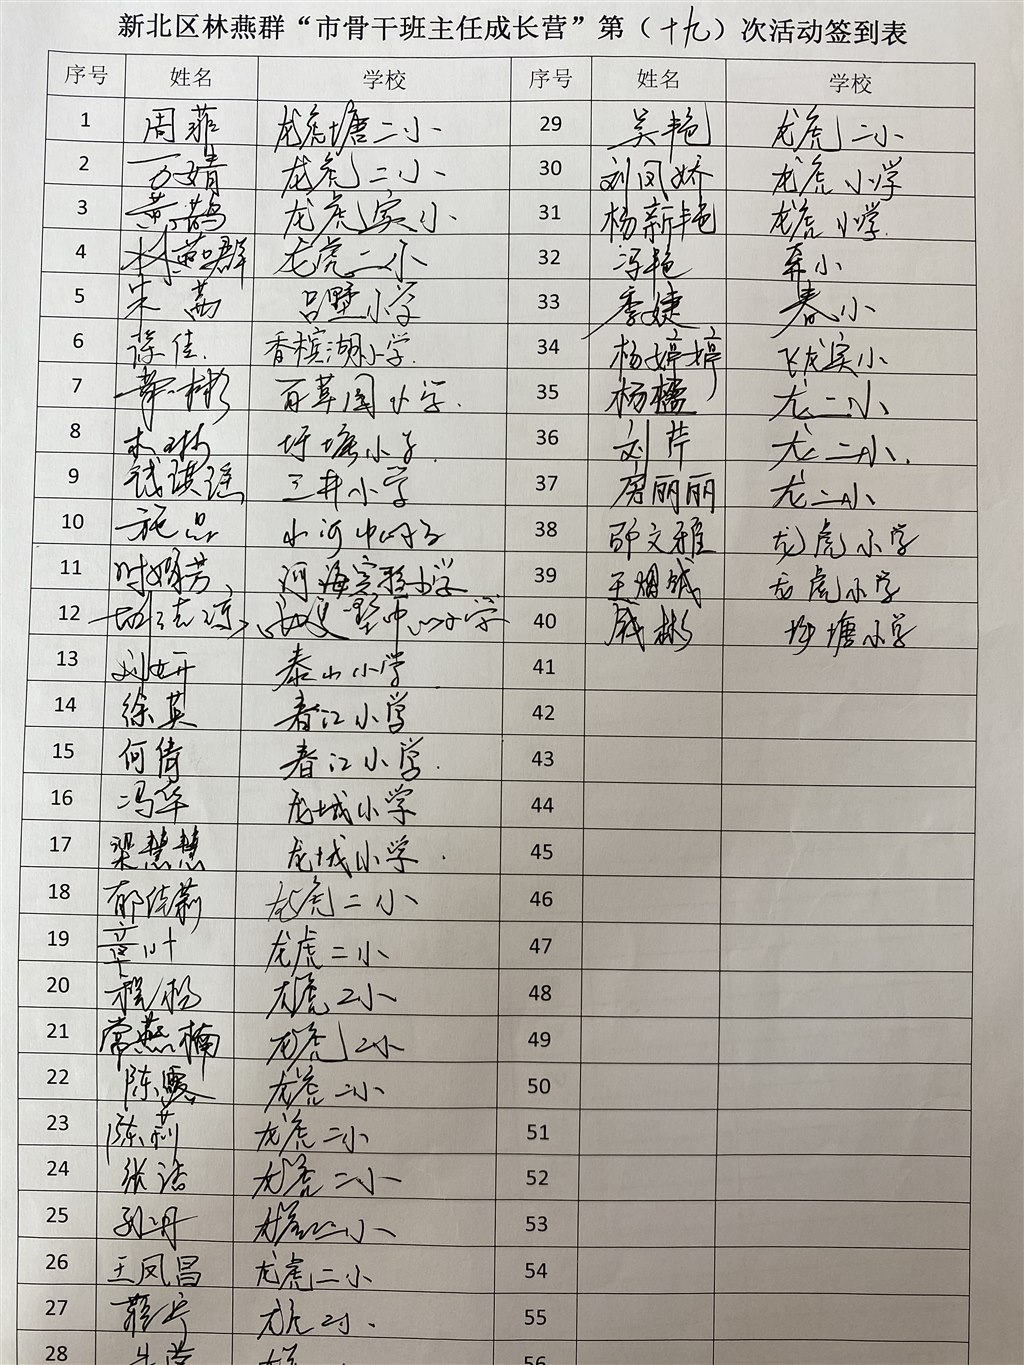 新北区林燕群“市骨干班主任成长营”第（十九）次活动签到表
序号 姓名 学校 序号 姓名 学校
1 周菲 龙虎塘二小 29 吴艳 龙虎二小
2 万婧 龙虎二小 30 刘凤娇 龙虎小学
3 黄鹊 龙虎实小 31 杨新艳 龙虎小学
4 林燕群 龙虎二小 32 冯艳 奔小
5 朱茜 吕墅小学 33 季婕 春小
6 薛佳 香槟湖小学 34 杨婷婷 飞龙实小
7 彬 百草园小学 35 杨 龙二小
8 琳 圩塘小学 36 刘芹 龙二小
9 钱琪瑶 三井小学 37 房丽丽 龙二小
10 施品 小河中心小学 38 邵文雅 龙虎小学
11 时娟芳 河海实验小学 39 王 龙虎小学
12 中心小学 40 戚彬 圩塘小学
13 刘妍 泰山小学 41
14 徐英 春江小学 42
15 何倩 春江小学 43
16 冯华 龙城小学 44
17 梁慧慧 龙城小学 45
18 郁佳莉 龙虎二小 46
19 章叶 龙虎二小 47
20 程杨 龙虎2小 48
21 常燕楠 龙虎2小 49
22 陈露 龙虎二小 50
23 陈莉 龙虎二小 51
24 张洁 龙虎二小 52
25 孙丹 龙虎二小 53
26 王凤昌 龙虎二小 54
27 龙虎2小 55
28 56